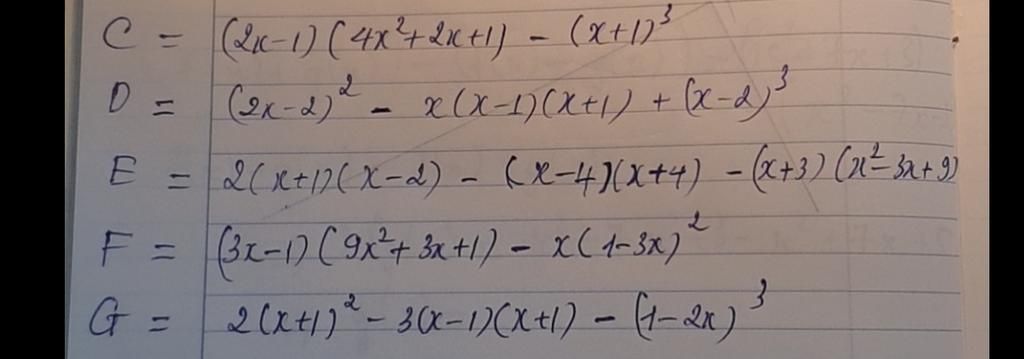 C = (2x-1)(4x²+2x+1) - (x+1)³
D = (2x-2)² - x(x-1)(x+1) + (x-2)³
E = 2(x+1)(x-2) - (x-4)(x+4) - (x+3)(x²-3x+9)
F = (3x-1)(9x²+3x+1) - x(1-3x)²
G = 2(x+1)² - 3(x-1)(x+1) - (1-2x)³